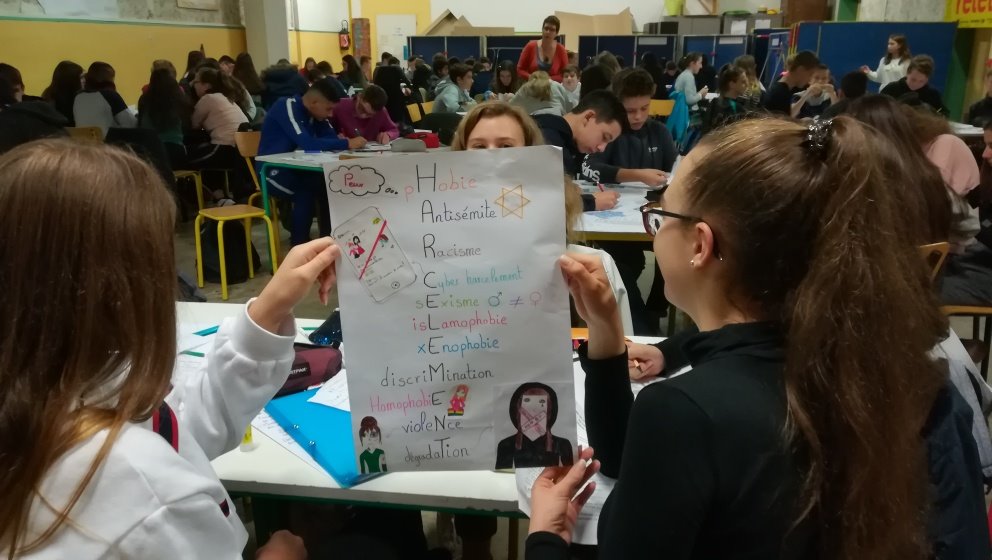 Peur ... pHobie
Antisémite
Racisme
Cyber harcelement
sExisme ♂ ≠ ♀
isLamophobie
xEnophobie
discriMination
HomophobiE
violeNce
dégradaTion